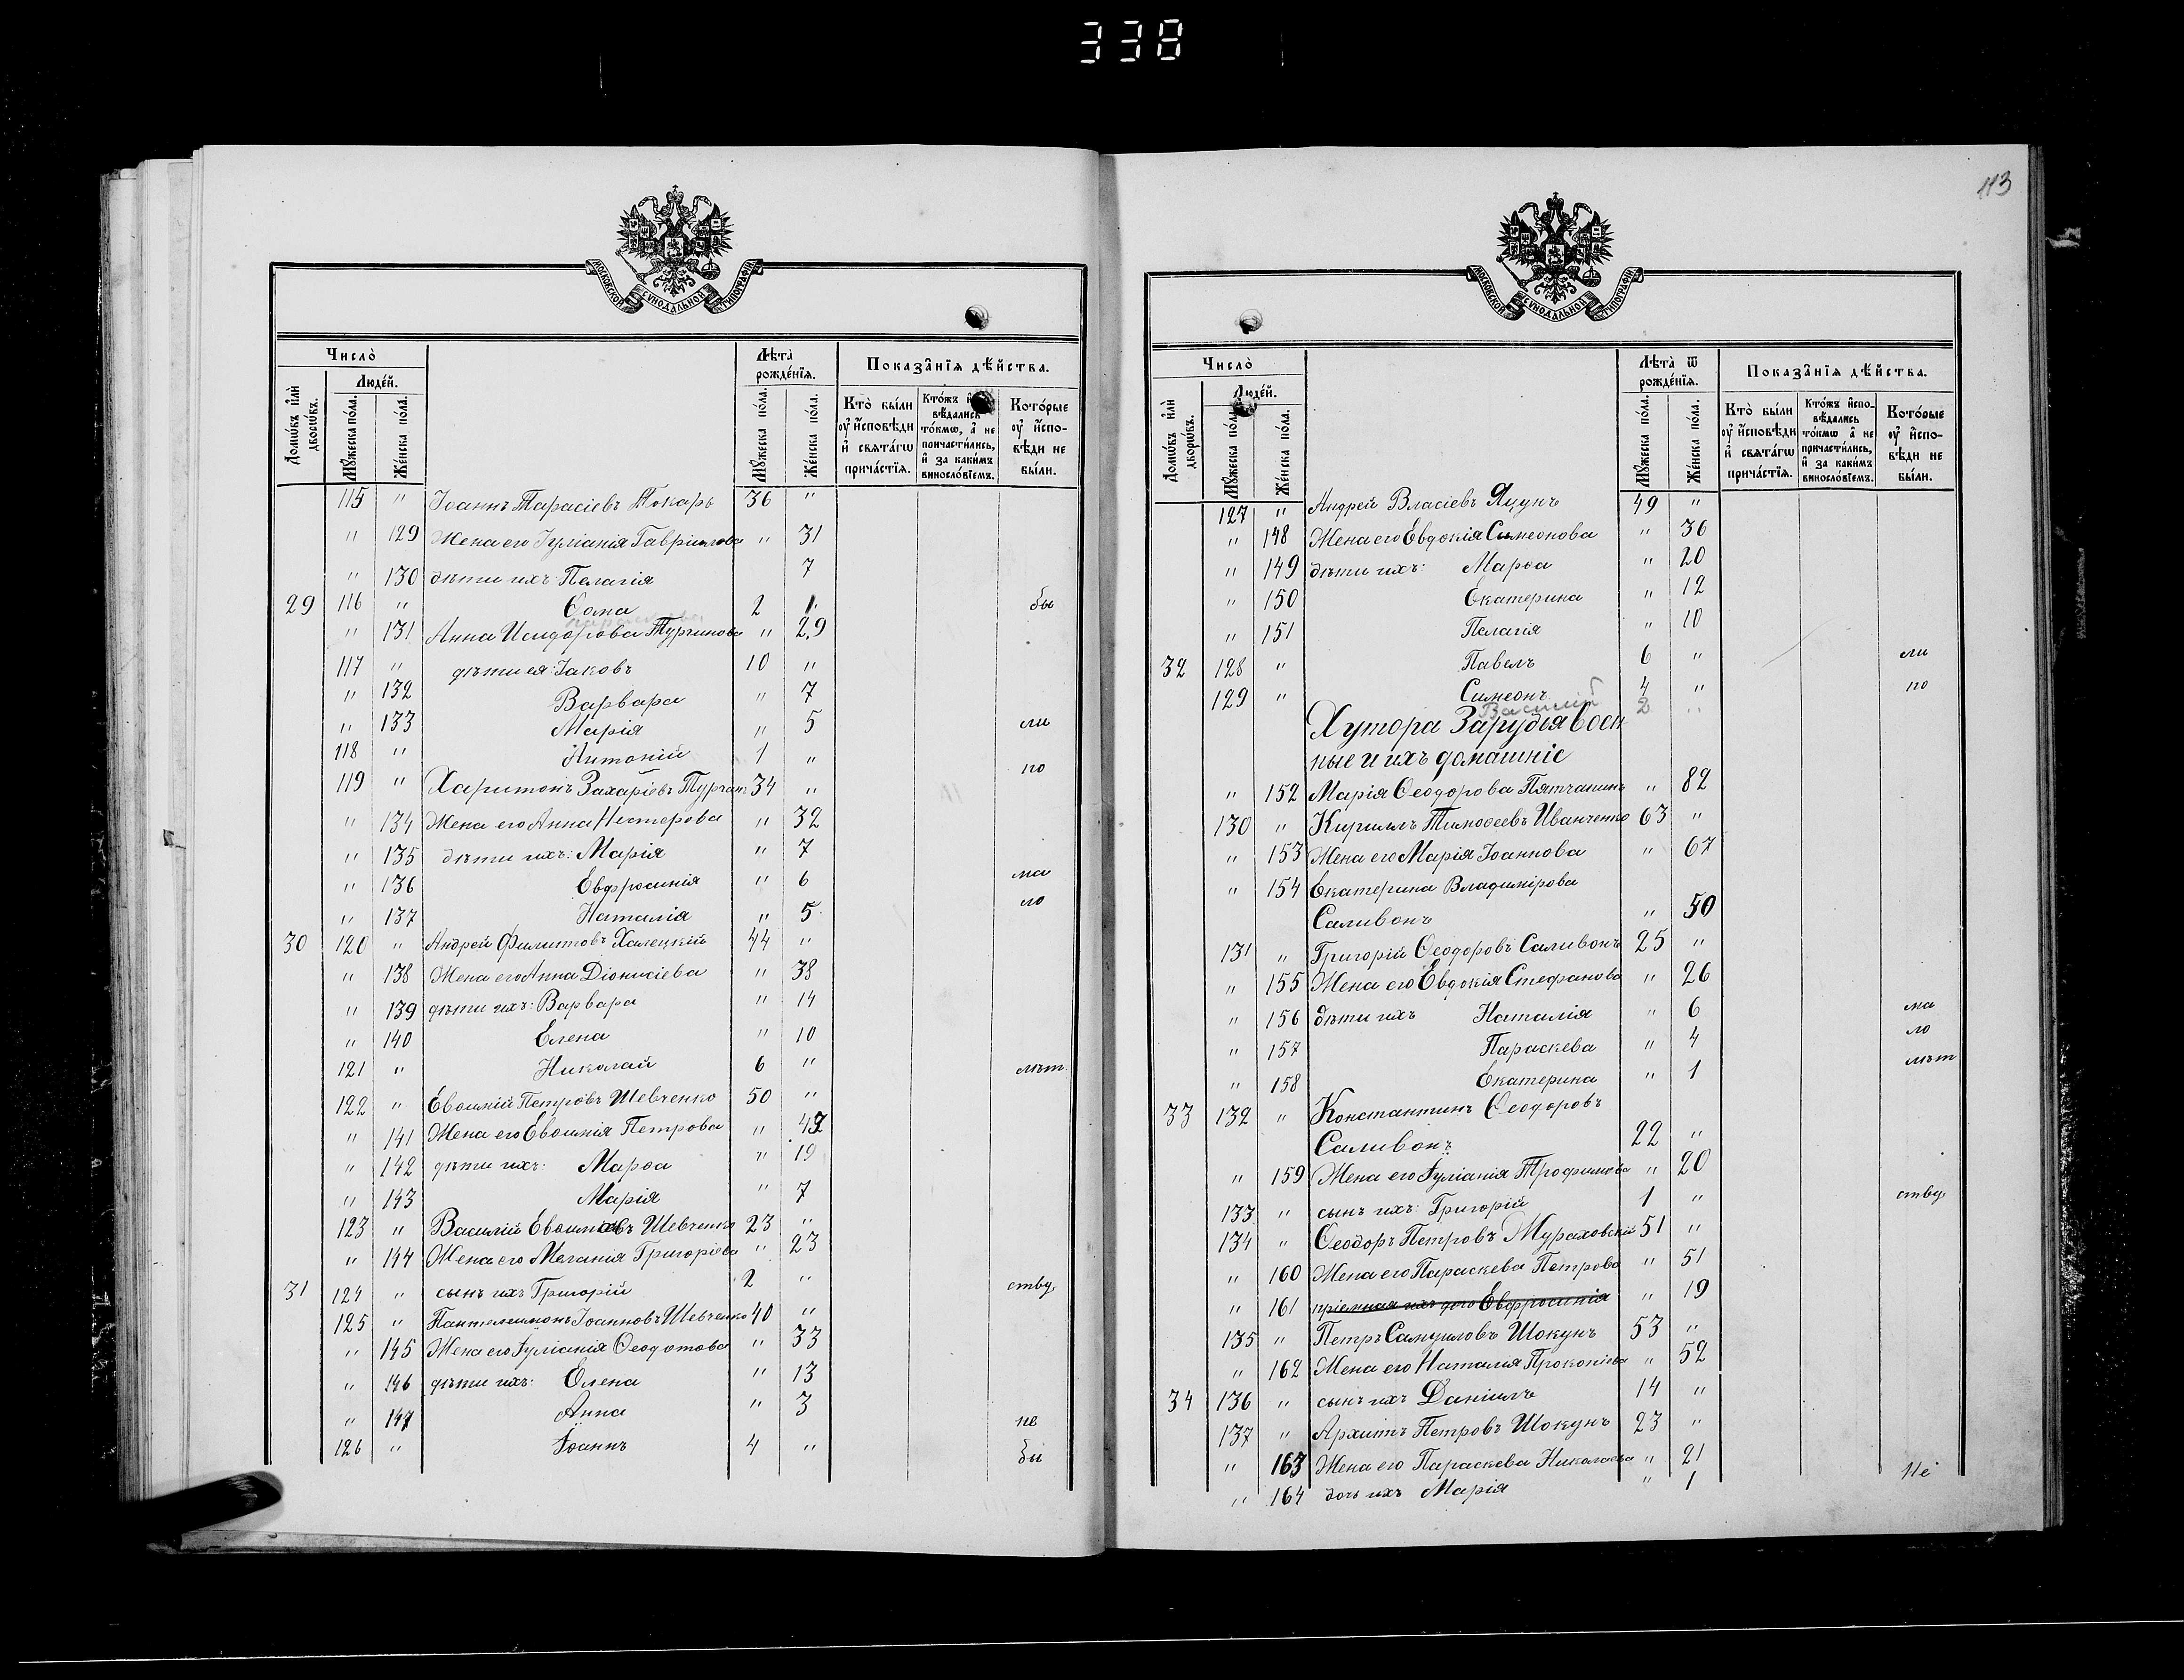 338
МОСКОВСКОЙ СѴНОДАЛЬНОЙ ТИПОГРАФІИ
Число̀
Люде́й.
Лѣта̀ рожде́нїѧ.
Показа̑нїѧ дѣ́йства.
Домѡ́въ и҆лѝ дворѡ́въ.
Мꙋ́жеска по́ла.
Же́нска по́ла.
Мꙋ́жеска по́ла.
Же́нска по́ла.
Кто̀ бы́ли оу҆ и҆сповѣди и҆ свѧта́гѡ прича́стїѧ.
Кто́жъ и҆сповѣдались то́кмѡ, а҆ не причасти́лись, и҆ за каки́мъ винослό́вїемъ.
Кото́рые оу҆ и҆сповѣди не бы́ли.
115 " Іоаннъ Тарасіевъ Токарь 36 "
" 129 Жена его Іуліанія Гавріилова " 31
" 130 дѣти ихъ: Пелагія 7
29 116 " Ѳома 2 1 бы
параскева
" 131 Анна Исидорова Турчинова " 29
117 " дѣти ея: Іаковъ 10 "
" 132 Варвара " 7
" 133 Марія " 5 ли
118 " Антоній 1 " по
119 " Харитонъ Захаріевъ Турчинъ 34 "
" 134 Жена его Анна Нестерова " 32
" 135 дѣти ихъ: Марія " 7
" 136 Евфросинія " 6 ма
" 137 Наталія " 5 ло
30 120 " Андрей Филиповъ Халецкій 44 "
" 138 Жена его Анна Діонисіева " 38
" 139 дѣти ихъ: Варвара " 14
" 140 Елена " 10
121 " Николай 6 " лѣт
122 " Евѳимій Петровъ Шевченко 50 "
" 141 Жена его Евѳимія Петрова " 49
" 142 дѣти ихъ: Марѳа " 19
" 143 Марія " 7
123 " Василій Евѳимовъ Шевченко 23 "
" 144 Жена его Меланія Григоріева " 23
31 124 " сынъ ихъ Григорій 2 " ству,
125 " Пантелеимонъ Іоанновъ Шевченко 40 "
" 145 Жена его Іуліанія Ѳеодотова " 33
" 146 дѣти ихъ: Елена " 13
" 147 Анна " 3 не
126 " Іоаннъ 4 " бы
113
МОСКОВСКОЙ СѴНОДАЛЬНОЙ ТИПОГРАФІИ
Число̀
Люде́й.
Лѣта̀ ѿ рожде́нїѧ.
Показа̑нїѧ дѣ́йства.
Домѡ́въ и҆лѝ дворѡ́въ.
Мꙋ́жеска по́ла.
Же́нска по́ла.
Мꙋ́жеска по́ла.
Же́нска по́ла.
Кто̀ бы́ли оу҆ и҆сповѣди и҆ свѧта́гѡ прича́стїѧ.
Кто́жъ и҆сповѣдались то́кмѡ а҆ не причасти́лись, и҆ за каки́мъ винослό́вїемъ.
Кото́рые оу҆ и҆сповѣди не бы́ли.
127 " Андрей Власіевъ Яцунъ 49 "
" 148 Жена его Евдокія Симеонова " 36
" 149 дѣти ихъ: Марѳа " 20
" 150 Екатерина " 12
" 151 Пелагія " 10
32 128 " Павелъ 6 " ли
129 " Симеонъ 4 " по
Василій 2 "
Хутора Зарудья воен
ные и ихъ домашніе
" 152 Марія Ѳеодорова Пятчанинъ " 82
130 " Кириллъ Тимоѳеевъ Иванченко 63 "
" 153 Жена его Марія Іоаннова " 67
" 154 Екатерина Владимірова
Саливонъ " 50
131 " Григорій Ѳеодоровъ Саливонъ 25 "
" 155 Жена его Евдокія Стефанова " 26
" 156 дѣти ихъ Наталія " 6 ма
" 157 Параскева " 4 ло
" 158 Екатерина " 1 лѣт
33 132 " Константинъ Ѳеодоровъ
Саливонъ 22 "
" 159 Жена его Іуліанія Трофимова " 20
133 " сынъ ихъ: Григорій 1 " ству,
134 " Ѳеодоръ Петровъ Мураховскій 51 "
" 160 Жена его Параскева Петрова " 51
" 161 пріемная ихъ дочь Евфросинія " 19
135 " Петръ Самуиловъ Шокунъ 53 "
" 162 Жена его Наталія Прокопіева " 52
34 136 " сынъ ихъ Даніилъ 14 "
137 " Архипъ Петровъ Шокунъ 23 "
" 163 Жена его Параскева Николаева " 21
" 164 дочь ихъ Марія " 1 не